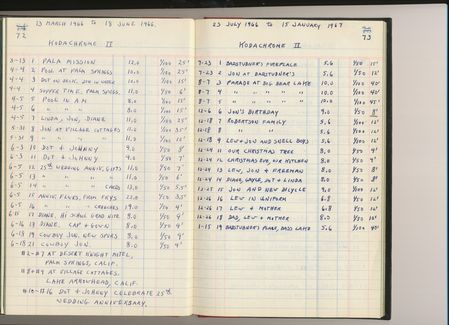 72
13 MARCH 1966 to 18 JUNE 1966.
KODACHROME II
3-13 1 PALA MISSION 12.0 1/100 25'
4-4 2 POOL AT PALM SPRINGS 10.0 1/100 25'
4-4 3 DOT IN DECK, JON IN WATER 10.0 1/100 15'
4-4 4 SUPPER TIME, PALM SPRGS. 11.0 1/50 6'
4-5 5 POOL IN A.M. 8.0 1/100 15'
4-5 6 " " " 8.0 1/100 15'
4-5 7 LINDA, JON, DIANE 11.0 1/100 25'
5-31 8 JON AT VILLAGE COTTAGES 11.0 1/100 35'
5-31 9 " " " " 11.0 1/100 15'
6-3 10 DOT & JOHNNY 9.0 1/50 8'
6-3 11 DOT & JOHNNY 9.0 1/50 7'
6-5 12 25th WEDDING ANNIV. GIFTS 11.0 1/50 7'
6-5 13 " " " " 11.0 1/50 6'
6-5 14 " " " CARDS 13.0 1/50 5.5'
6-5 15 ANNIV. FLWRS. FROM FRYS 22.0 1/50 3.5'
6-5 16 " " " CREECHES 19.0 1/50 4'
6-15 17 DIANE, HI SCHOOL GRAD NITE 8.0 1/50 9'
6-16 18 DIANE, CAP & GOWN 8.0 1/50 9'
6-18 19 COWBOY JON, NEW SPURS 8.0 1/50 9'
6-18 21 COWBOY JON. 8.0 1/50 9'
#2-#7 AT DESERT NIGHT MOTEL,
PALM SPRINGS, CALIF.
#8+#9 AT VILLAGE COTTAGES.
LAKE ARROWHEAD, CALIF.
#10-#16 DOT & JOHNNY CELEBRATE 25th
WEDDING ANNIVERSARY.
73
23 JULY 1966 to 15 JANUARY 1967
KODACHROME II
7-23 1 BADSTUBNER'S FIREPLACE 5.6 1/50 15'
7-23 2 JON AT BADSTUBNER'S 5.6 1/50 12'
8-7 3 PARADE AT BIG BEAR LAKE 10.0 1/100 40'
8-7 4 " " " " " 10.0 1/100 40'
8-7 5 " " " " " 10.0 1/100 45'
12-6 6 JON'S BIRTHDAY 9.0 1/50 8'
12-18 7 ROBERTSON FAMILY 5.6 1/50 12'
12-18 8 " " 5.6 1/50 12'
12-18 9 LEW + JON AND SNELL BOYS 5.6 1/50 12'
12-24 11 OUR CHRISTMAS TREE 8.0 1/50 9'
12-24 12 CHRISTMAS EVE, OUR KITCHEN 8.0 1/50 9'
12-24 13 LEW, JON & FREEMAN 8.0 1/50 8'
12-24 14 DIANE, GAYLE, DOT & LINDA 8.0 1/50 8'
12-25 15 JON AND NEW BICYCLE 9.0 1/100 12'
12-26 16 LEW IN UNIFORM 6.8 1/100 12'
12-26 17 LEW + MOTHER 6.8 1/100 10'
12-26 18 DAD, LEW & MOTHER 8.0 1/100 10'
1-15 19 BADSTUBNER'S PLACE, BASS LAKE 5.6 1/100 40'